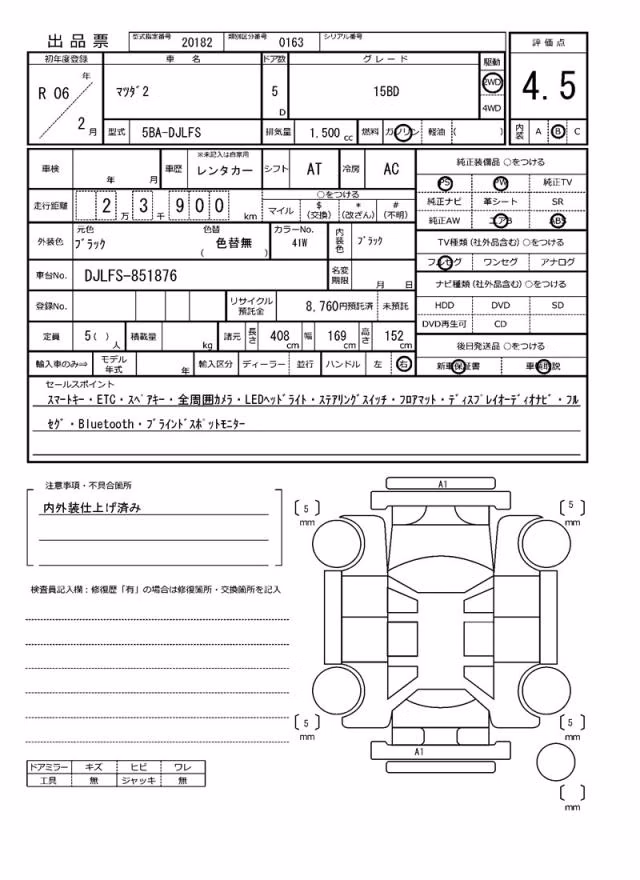 出品票 型式指定番号 20182 類別区分番号 0163 シリアル番号
評価点
4.5
内装 A B C
初年度登録 車名 ドア数 グレード 駆動
R 06 年 2 月
マツダ2 5 D 15BD 2WD 4WD
型式 5BA-DJLFS 排気量 1.500 cc 燃料 ガソリン 軽油 ( )
車検 年 月 車歴 ※未記入は自家用 レンタカー シフト AT 冷房 AC
走行距離 2 万 3 千 9 0 0 km
○をつける
マイル $ (交換) * (改ざん) # (不明)
外装色 元色 ブラック 色替 ( 色替無 ) カラーNo. 41W 内装色 ブラック
車台No. DJLFS-851876 名変期限 月 日
登録No. リサイクル預託金 8,760円預託済 未預託
定員 5( ) 人 積載量 kg 諸元 長さ 408 cm 幅 169 cm 高さ 152 cm
輸入車のみ⇒ モデル年式 年 輸入区分 ディーラー 並行 ハンドル 左 右
純正装備品 ○をつける
PS PW 純正TV
純正ナビ 革シート SR
純正AW エアB ABS
TV種類 (社外品含む) ○をつける
フルセグ ワンセグ アナログ
ナビ種類 (社外品含む) ○をつける
HDD DVD SD
DVD再生可 CD
後日発送品 ○をつける
新車保証書 車輌取説
セールスポイント
スマートキー・ETC・スペアキー・全周囲カメラ・LEDヘッドライト・ステアリングスイッチ・フロアマット・ディスプレイオーディオナビ・フル
セグ・Bluetooth・ブラインドスポットモニター
注意事項・不具合箇所
内外装仕上げ済み
検査員記入欄：修復歴「有」の場合は修復箇所・交換箇所を記入
A1
[ 5 ] mm
[ 5 ] mm
[ 5 ] mm
[ 5 ] mm
A1
[ ] mm
ドアミラー キズ ヒビ ワレ
工具 無 ジャッキ 無